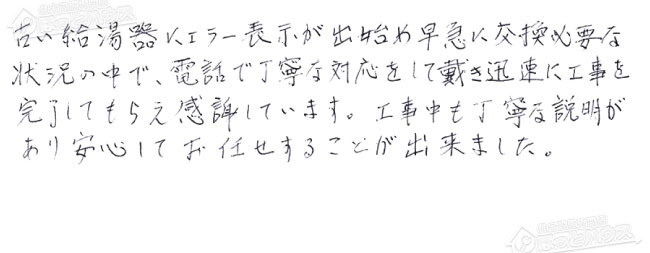 古い給湯器にエラー表示が出始め早急に交換必要な
状況の中で、電話で丁寧な対応をして戴き迅速に工事を
完了してもらえ感謝しています。工事中も丁寧な説明が
あり安心してお任せすることが出来ました。